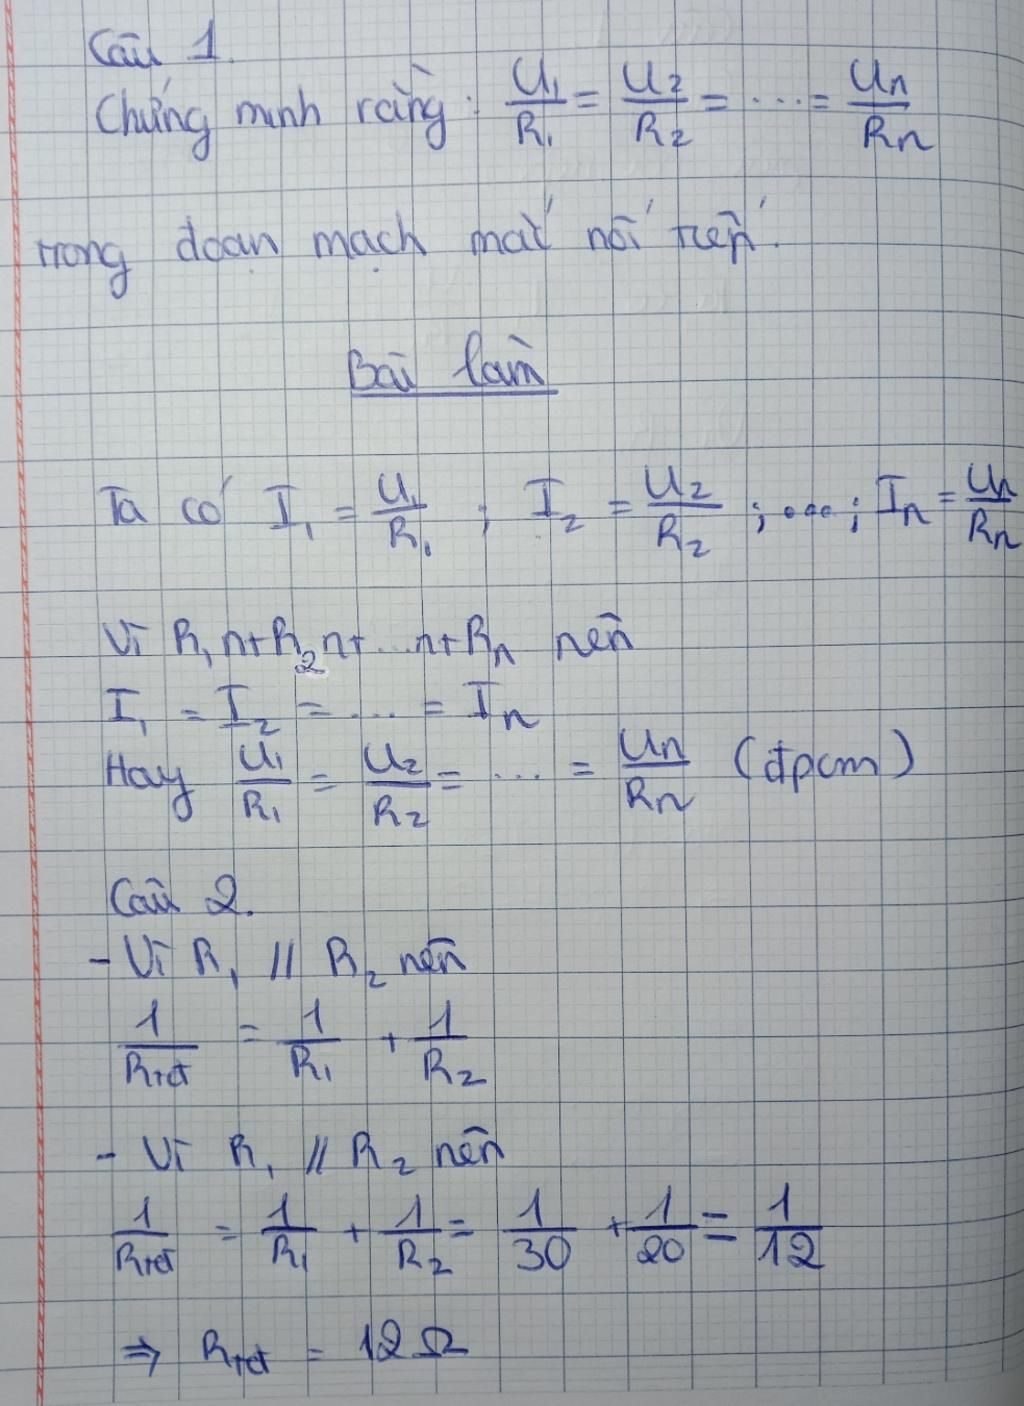 Câu 1.
Chứng minh rằng: U₁/R₁ = U₂/R₂ = ... = Uₙ/Rₙ
trong đoạn mạch mắc nối tiếp.
Bài làm
Ta có I₁ = U₁/R₁ ; I₂ = U₂/R₂ ; ... ; Iₙ = Uₙ/Rₙ
Vì R₁ nt R₂ nt ... nt Rₙ nên
I₁ = I₂ = ... = Iₙ
Hay U₁/R₁ = U₂/R₂ = ... = Uₙ/Rₙ (đpcm)
Câu 2.
- Vì R₁ // R₂ nên
1/Rtđ = 1/R₁ + 1/R₂
- Vì R₁ // R₂ nên
1/Rtđ = 1/R₁ + 1/R₂ = 1/30 + 1/20 = 1/12
⇒ Rtđ = 12 Ω